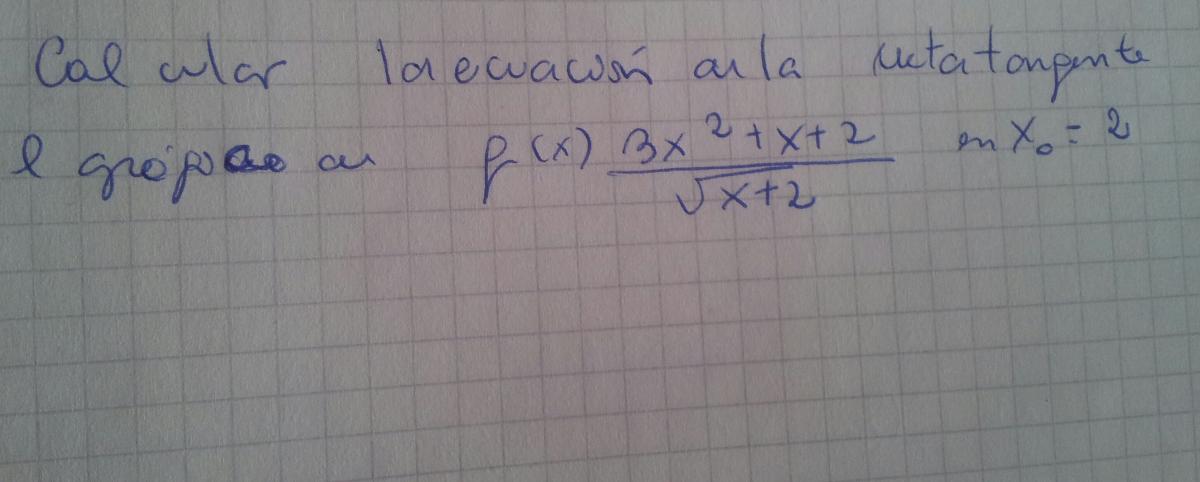 Calcular la ecuación de la recta tangente
l gráfico de f(x) \frac{3x^2+x+2}{\sqrt{x+2}} en x_0 = 2